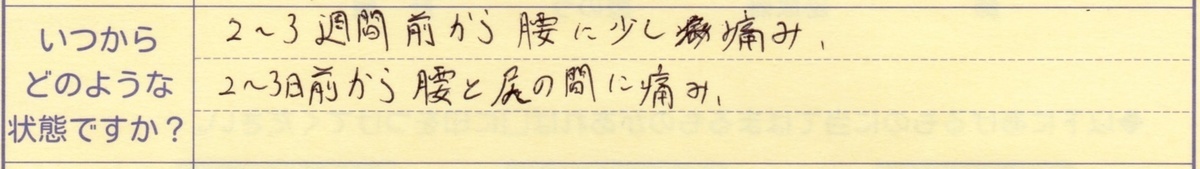 いつから
どのような
状態ですか?
2~3週間前から腰に少し痛み.
2~3日前から腰と尻の間に痛み.